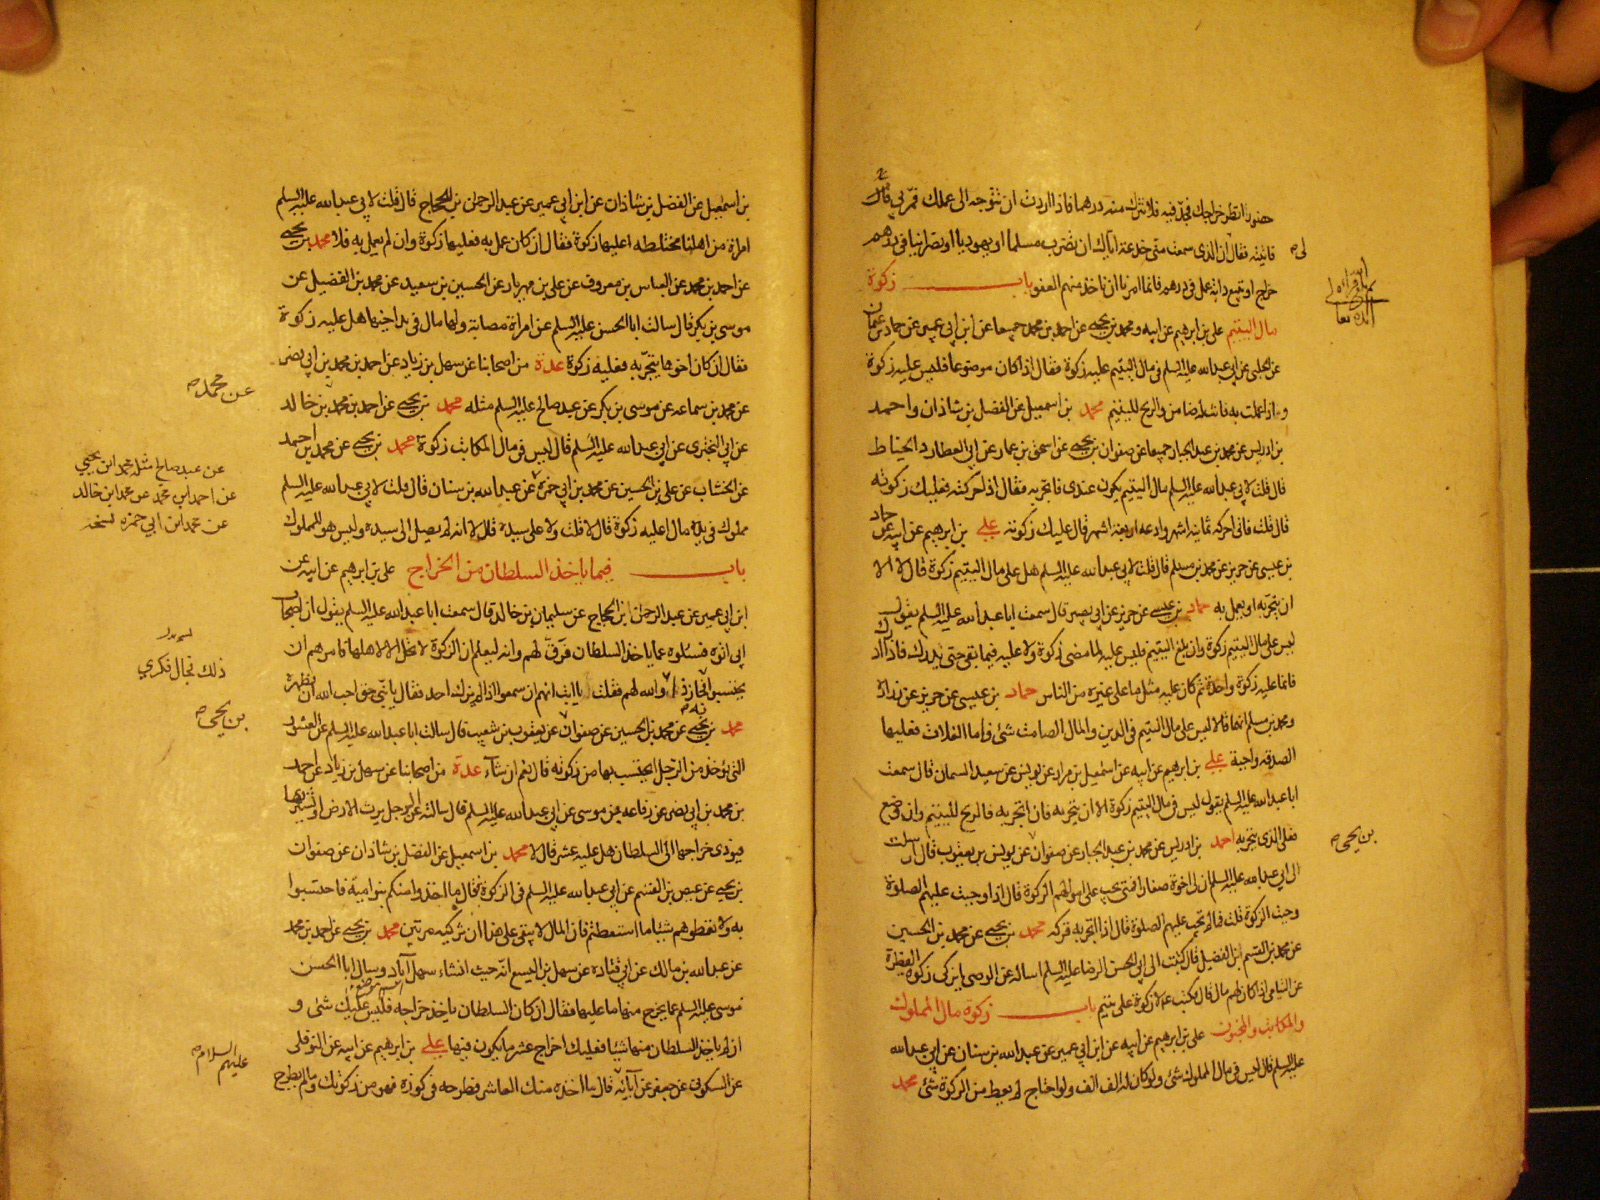 حضور انظر خراجك فجد فيه فلا تترك منه درهما فاذا اردت ان تتوجه الى عملك فمر بي قال
فاتيته فقال ان الذي سمعت مني خدعة اياك ان تضرب مسلما او يهوديا او نصرانيا في درهم
خراج او تبيع دابة عمل في درهم فانما امرنا ان ناخذ منهم العفو باب زكوة
مال اليتيم علي بن ابرهيم عن ابيه ومحمد بن يحيى عن احمد بن محمد جميعا عن ابن ابي عمير عن حماد بن عثمان
عن الحلبي عن ابي عبد الله عليه السلم في مال اليتيم عليه زكوة فقال اذا كان موضوعا فليس عليه زكوة
واذا عملت به فانت له ضامن والربح لليتيم محمد بن اسمعيل عن الفضل بن شاذان واحمد
بن ادريس عن محمد بن عبد الجبار جميعا عن صفوان بن يحيى عن اسحق بن عمار عن ابي العطارد الحناط
قال قلت لابي عبد الله عليه السلم مال اليتيم يكون عندي فاتجر به فقال اذا حركته فعليك زكوته
قال قلت فاني احركه ثمانية اشهر وادعه اربعة اشهر قال عليك زكوته علي بن ابرهيم عن ابيه عن حماد
بن عيسى عن حريز عن محمد بن مسلم قال قلت لابي عبد الله عليه السلم هل على مال اليتيم زكوة قال لا الا
ان يتجر به او يعمل به حماد بن عيسى عن حريز عن ابي بصير قال سمعت ابا عبد الله عليه السلم يقول
ليس على مال اليتيم زكوة وان بلغ اليتيم فليس عليه لما مضى زكوة ولا عليه فيما بقي حتى يدرك فاذا ادرك
فانما عليه زكوة واحدة ثم كان عليه مثل ما على غيره من الناس حماد بن عيسى عن حريز عن زرارة
ومحمد بن مسلم انهما قالا ليس على مال اليتيم في الدين والمال الصامت شئ فاما الغلات فعليها
الصدقه واجبة علي بن ابرهيم عن ابيه عن اسمعيل بن مرار عن يونس عن سعيد السمان قال سمعت
ابا عبد الله عليه السلم يقول ليس في مال اليتيم زكوة الا ان يتجر به فان اتجر به فالربح لليتيم وان وضع
فعلى الذي يتجر به احمد بن ادريس عن محمد بن عبد الجبار عن صفوان عن يونس بن يعقوب قال ارسلت
الى ابي عبد الله عليه السلم ان لي اخوة صغارا فمتى يجب على اموالهم الزكوة قال اذا وجبت عليهم الصلوة
وجبت الزكوة قلت فما لم تجب عليهم الصلوة قال اذا اتجر به فزكه محمد بن يحيى عن محمد بن الحسين
عن محمد بن القسم بن الفضيل قال كتبت الى ابي الحسن الرضا عليه السلم اساله عن الوصي ايزكي زكوة الفطرة
عن اليتامى اذا كان لهم مال قال فكتب ع لا زكوة على يتيم باب زكوة مال المملوك
والمكاتب والمجنون علي بن ابرهيم عن ابيه عن ابن ابي عمير عن عبد الله بن سنان عن ابي عبد الله
عليه السلم قال ليس في مال المملوك شئ ولو كان له الف الف ولو احتاج لم يعط من الزكوة شئ محمد
لي ص
بن يحيى ص
بن اسمعيل عن الفضل بن شاذان عن ابن ابي عمير عن عبد الرحمن بن الحجاج قال قلت لابي عبد الله عليه السلم
امراة من اهلنا مختلطه اعليها زكوة فقال ان كان عمل به فعليها زكوة وان لم يعمل به فلا محمد بن يحيى
عن احمد بن محمد عن العباس بن معروف عن علي بن مهزيار عن الحسين بن سعيد عن محمد بن الفضيل عن
موسى بن بكر قال سالت ابا الحسن عليه السلم عن امراة مصابة ولها مال في يد اخيها هل عليه زكوة
فقال ان كان اخوها يتجر به فعليه زكوة عدة من اصحابنا عن سهل بن زياد عن احمد بن محمد بن ابي نصر
عن محمد بن سماعه عن موسى بن بكر عن عبد صالح عليه السلم مثله محمد بن يحيى عن احمد بن محمد بن خالد
عن ابي البختري عن ابي عبد الله عليه السلم قال ليس في مال المكاتب زكوة محمد بن يحيى عن محمد بن احمد
عن الخشاب عن علي بن الحسين عن محمد بن ابي حمزة عن عبد الله بن سنان قال قلت لابي عبد الله عليه السلم
مملوك في يده مال اعليه زكوة قال لا قلت ولا على سيده قال لا انه لم يصل الى سيده وليس هو للمملوك
باب فيما ياخذ السلطان من الخراج علي بن ابرهيم عن ابيه عن
ابن ابي عمير عن عبد الرحمن بن الحجاج عن سليمان بن خالد قال سمعت ابا عبد الله عليه السلم يقول ان اصحاب
ابي اتوه فسئلوه عما ياخذ السلطان فرق لهم وانه ليعلم ان الزكوة لا تحل الا لاهلها فامرهم ان
يحتسبوا به فجاز ذا والله لهم فقلت يا ابت انهم ان سمعوا اذا لم يزك احد فقال يا بني حق احب الله ان يظهره
محمد بن يحيى عن محمد بن الحسين عن صفوان عن يعقوب بن شعيب قال سالت ابا عبد الله عليه السلم عن العشور
التي تؤخذ من الرجل ايحتسب بها من زكوته قال نعم ان شاء عدة من اصحابنا عن سهل بن زياد عن احمد
بن محمد بن ابي نصر عن رفاعه بن موسى عن ابي عبد الله عليه السلم قال سالته عن الرجل يرث الارض او يشتريها
فيودي خراجها الى السلطان هل عليه عشر قال لا محمد بن اسمعيل عن الفضل بن شاذان عن صفوان
بن يحيى عن عيص بن القسم عن ابي عبد الله عليه السلم في الزكوة قال ما اخذوا منكم بنو امية فاحتسبوا
به ولا تعطوهم شيئا ما استطعتم فان المال لا يبقى على هذا ان تزكيه مرتين محمد بن يحيى عن احمد بن محمد
عن عبد الله بن مالك عن ابي قتادة عن سهل بن اليسع انه حيث انشاء سهل آباد وسال ابا الحسن
موسى عليه السلم عما يخرج منها ما عليها فقال ان كان السلطان ياخذ خراجه فليس عليك شئ و
ان لم ياخذ السلطان منها شيئا فعليك اخراج عشر ما يكون فيها علي بن ابرهيم عن ابيه عن النوفلي
عن السكوني عن جعفر عن آبائه قال ما اخذه منك العاشر فطرحه في كوزة فهو من زكوتك وما لم يطرح
عن محمد ص
عن عبد صالح مثله محمد ابن يحيى
عن احمد ابن محمد عن محمد ابن خالد
عن محمد ابن ابي حمزه نسخه
ذلك فجال فكري
بن يحيى ص
عليهم السلام ص